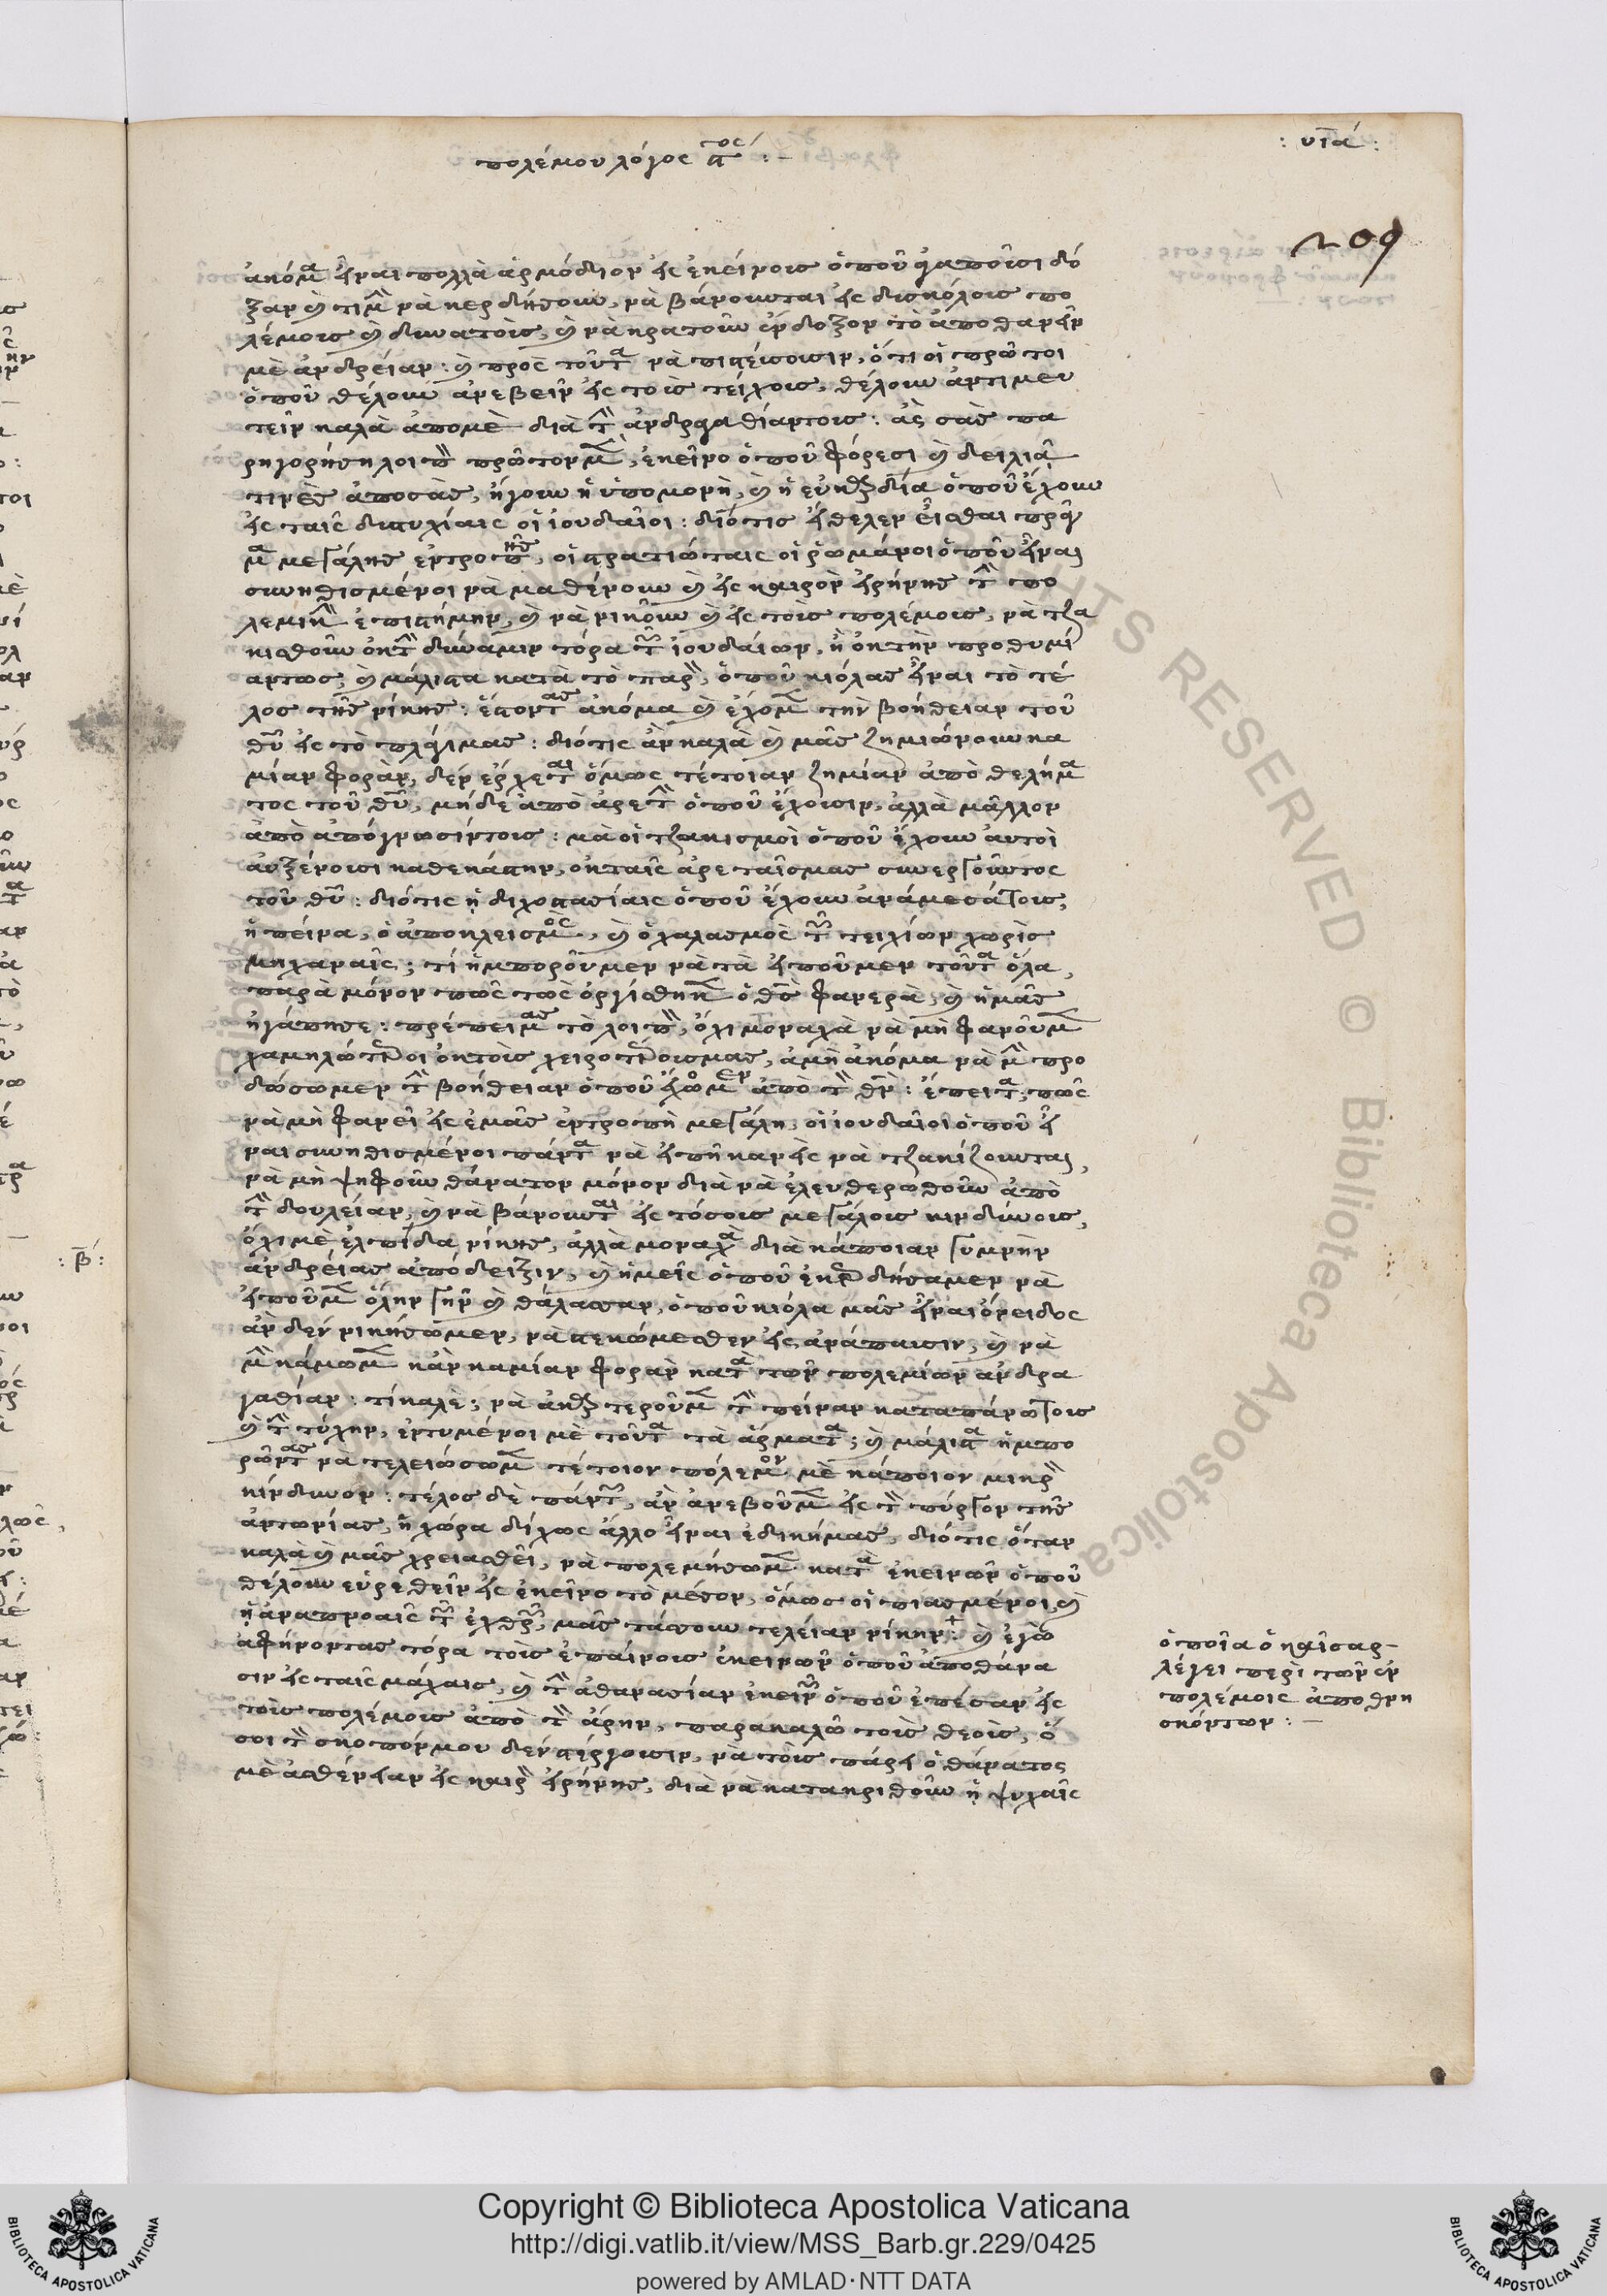 πολέμου λόγος ϛ^ος :-
: υια :
209
ἀκόμα εἶναι πολλὰ ἁρμόδιον εἰς ἐκείνους ὁποῦ ἀγαποῦσι δό
ξαν καὶ τιμὴν νὰ κερδήσουν, νὰ βάνουνται εἰς δισκόλους πο
λέμους καὶ δυνατοὺς, καὶ νὰ κρατοῦν ἔνδοξον τὸ ἀποθανεῖν
μὲ ἀνδρείαν : καὶ πρὸς τοῦτα νὰ πιστεύσουσιν, ὅτι οἱ πρῶτοι
ὁποῦ θέλουν ἀνεβεῖν εἰς τοὺς τείχους, θέλουν ἀντιμευ
τεῖν καλὰ ἀπομὲ διὰ τὴν ἀνδραγαθίαντους : ἂς σᾶς πα
ρηγορήσῃ λοιπὸν πρῶτον μὲν, ἐκεῖνο ὁποῦ φόρεσι καὶ δειλιᾷ
τινὲς ἀποσᾶς, ἤγουν ἡ ὑπομονὴ, καὶ ἡ εὐκαρδία ὁποῦ ἔχουν
εἰς ταῖς δυστυχίαις οἱ ἰουδαῖοι : διότις ἤθελεν εἶσθαι πρᾶγ
μα μεγάλης ἐντροπῆς, οἱ στρατιώταις οἱ ῥωμάνοι ὁποῦ εἶναι
συνηθισμένοι νὰ μαθένουν καὶ εἰς καιρὸν εἰρήνης τὴν πο
λεμικὴν ἐπιστήμην, καὶ νὰ νικοῦν καὶ εἰς τοὺς πολέμους, νὰ τζα
κισθοῦν ἐκ τὴν δύναμιν τόρα τῶν ἰουδαίων, ἢ ἐκ τὴν προθυμί
αντως, καὶ μάλιστα κατὰ τὸ παρὸν, ὁποῦ κιόλας εἶναι τὸ τέ
λος τῆς νίκης : ἔστοντας ἀκόμα καὶ ἔχομεν τὴν βοήθειαν τοῦ
θεοῦ εἰς τὸ πλάγιμας : διότις ἂν καλὰ καὶ μᾶς ζημιώνουν κα
μίαν φορὰν, δὲν ἔρχεται ὅμως τέτοιαν ζημίαν ἀπὸ θελήμα
τος τοῦ θεοῦ, μήδὲ ἀπὸ ἀρετὴν ὁποῦ ἔχουσιν, ἀλλὰ μᾶλλον
ἀπὸ ἀπόγνωσίντους : μὰ οἱ τζακισμοὶ ὁποῦ ἔχουν αὐτοὶ
αὐξένουσι καθεκάστην, ἐκ ταῖς ἀρεταῖσμας συνεργοῦντος
τοῦ θεοῦ : διότις ἡ διχοστασίαις ὁποῦ ἔχουν ἀνάμεσάτους,
ἡ πείνα, ὁ ἀποκλεισμὸς, καὶ ὁ χαλασμὸς τῶν τειχίων χωρὶς
μηχαναῖς ; τί ἠμποροῦμεν νὰ τὰ εἰποῦμεν τοῦτα ὅλα,
παρὰ μόνον πῶς τὼς ὀργίσθηκεν ὁ θεὸς φανερὰ, καὶ ἡμᾶς
ἠγάπησε : πρέπει μας τὸ λοιπὸν, ὄχι μοναχὰ νὰ μὴ φανοῦμεν
χαμηλώτεροι ἐκ τοὺς χειροτέρουσμας, ἀμὴ ἀκόμα νὰ μὴν προ
δώσωμεν τὴν βοήθειαν ὁποῦ ἔχομεν ἀπὸ τὸν θεόν : ἔπειτα πῶς
νὰ μὴ φανεῖ εἰς ἐμᾶς ἐντροπὴ μεγάλη, οἱ ἰουδαῖοι ὁποῦ εἶ
ναι συνηθισμένοι πάντα νὰ εἰπῇ κανεὶς νὰ τζακίζουνται,
νὰ μὴ ψηφοῦν θάνατον μόνον διὰ νὰ ἐλευθερωθοῦν ἀπὸ
τὴν δουλείαν, καὶ νὰ βάνουνται εἰς τόσους μεγάλους κινδύνους,
ὄχι μὲ ἐλπίδα νίκης, ἀλλὰ μοναχὰ διὰ κάποιαν γυμνὴν
ἀνδρείας ἀπόδειξιν, καὶ ἡμεῖς ὁποῦ ἐκερδήσαμεν νὰ
εἰποῦμεν ὅλην γῆν καὶ θάλασσαν, ὁποῦ κιόλα μᾶς εἶναι ὄνειδος
ἂν δὲν νικήσωμεν, νὰ στεκώμεσθεν εἰς ἀνάπαυσιν, καὶ νὰ
μὴν κάμωμεν κἂν καμίαν φορὰν κατὰ τῶν πολεμίων ἀνδρα
γαθίαν : τί καλὲ ; νὰ ἀκαρτεροῦμεν τὴν πείναν καταπάνωτους
καὶ τὴν τύχην, ἐντυμένοι μὲ τοῦτα τὰ ἅρματα ; καὶ μάλιστα ἠμπο
ρῶντας νὰ τελειώσωμεν τέτοιον πόλεμον μὲ κάποιον μικρὸν
κίνδυνον : τέλος δὲ πάντων, ἂν ἀνεβοῦμεν εἰς τὸν πύργον τῆς
ἀντωνίας, ἡ χώρα δίχως ἄλλο εἶναι ἐδικήμας, διότις ὅταν
καλὰ καὶ μᾶς χρειασθεῖ, νὰ πολεμήσωμεν κατὰ ἐκεινῶν ὁποῦ
θέλουν εὑρεθεῖν εἰς ἐκεῖνο τὸ μέσον, ὅμως οἱ πιασμένοι, καὶ
ἡ ἀναπνοαῖς τῶν ἐχθρῶν, μᾶς τάσσουν τελείαν νίκην + : καὶ ἐγὼ
ἀφήνοντας τόρα τοὺς ἐπαίνους ἐκεινῶν ὁποῦ ἀποθάνα
σιν εἰς ταῖς μάχαις, καὶ τὴν ἀθανασίαν ἐκεινῶν ὁποῦ ἐπέσαν εἰς
τοὺς πολέμους ἀπὸ τὸν ἄρην, παρακαλῶ τοὺς θεοὺς, ὅ
σοι τὸν σκοπόνμου δὲν στέργουσιν, νὰ τοὺς πάρει ὁ θάνατος
μὲ ἀσθένειαν εἰς καιρὸν εἰρήνης, διὰ νὰ κατακριθοῦν ἡ ψυχαῖς
ὁποῖα ὁ καῖσαρ
λέγει περὶ τῶν ἐν
πολέμοις ἀποθνη
σκόντων : -
: β :
Copyright © Biblioteca Apostolica Vaticana
http://digi.vatlib.it/view/MSS_Barb.gr.229/0425
powered by AMLAD·NTT DATA